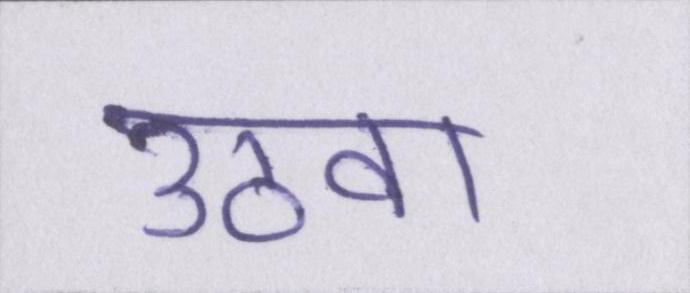 उठवा